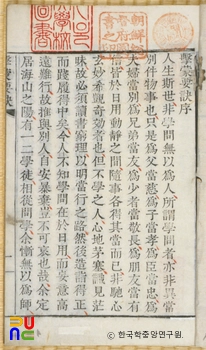 擊蒙要訣序
人生斯世非學問無以爲人所謂學問者亦非異常
別件物事也只是爲父當慈爲子當孝爲臣當忠爲
夫婦當別爲兄弟當友爲少者當敬長爲朋友當有
信皆於日用動靜之間隨事各得其當而已非馳心
玄妙希覬奇效者也但不學之人心地茅塞識見茫
昧故必須讀書窮理以明當行之路然後造詣得正
而踐履得中矣今人不知學問在於日用而妄意高
遠難行故推與別人自安暴棄豈不可哀也哉余定
居海山之陽有一二學徒相從問學余慚無以爲師
한국학중앙연구원